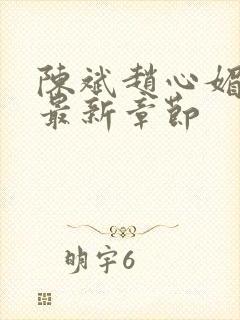 陳斌趙心媚
最新章節
明宇6